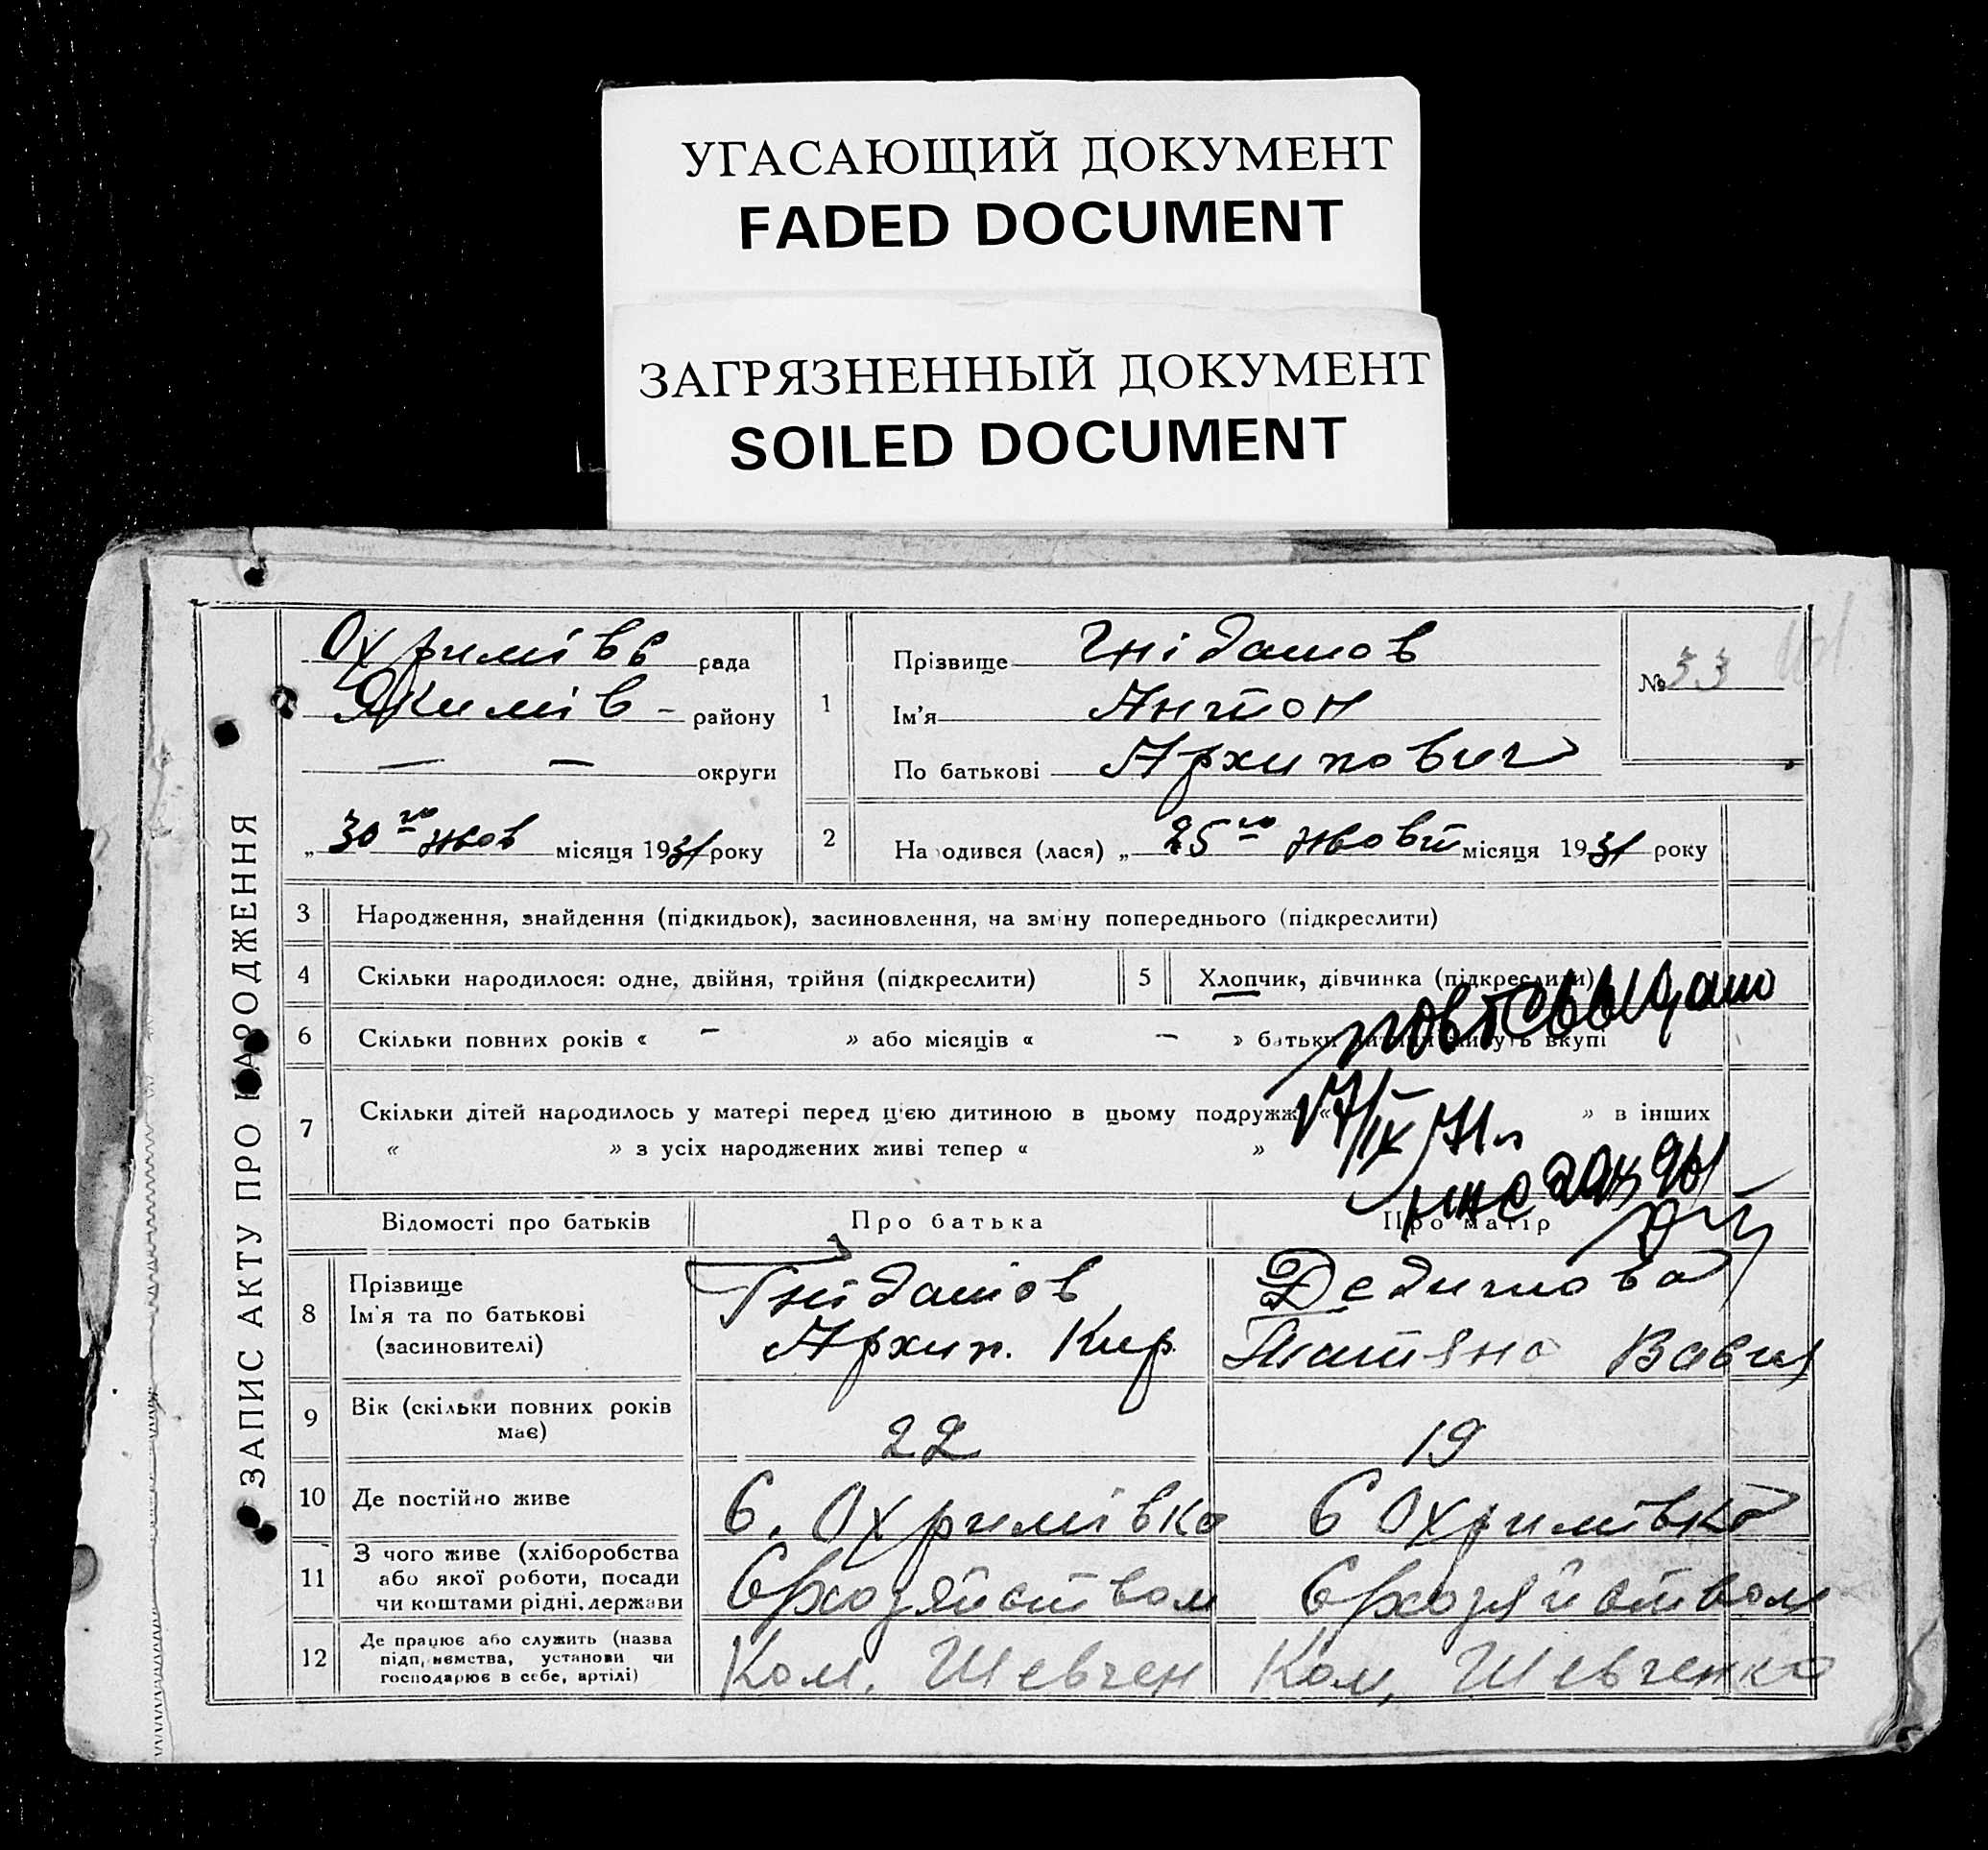 УГАСАЮЩИЙ ДОКУМЕНТ
FADED DOCUMENT
ЗАГРЯЗНЕННЫЙ ДОКУМЕНТ
SOILED DOCUMENT
ЗАПИС АКТУ ПРО НАРОДЖЕННЯ
Охримівс рада
Якимів - району
— — округи
„ 30го жов місяця 1931 року
1 Прізвище Гнідашов
Ім'я Антон
По батькові Архипович
№ 33
2 Народився (лася) „ 25го жовт місяця 1931 року
3 Народження, знайдення (підкидьок), засиновлення, на зміну попереднього (підкреслити)
4 Скільки народилося: одне, двійня, трійня (підкреслити)
5 Хлопчик, дівчинка (підкреслити)
6 Скільки повних років « – » або місяців « – » батьки дитини живуть вкупі
7 Скільки дітей народилось у матері перед цією дитиною в цьому подружжі « » в інших
« » з усіх народжених живі тепер « »
17/IX 71г
Відомості про батьків Про батька Про матір
8 Прізвище
Ім'я та по батькові
(засиновителі)
Гнідашов
Архип. Кир.
Татяна
9 Вік (скільки повних років
має)
22 19
10 Де постійно живе
с. Охримівка с Охримівка
11 З чого живе (хліборобства
або якої роботи, посади
чи коштами рідні, держави
Срхозяйством Срхозяйством
12 Де працює або служить (назва
підприємства, установи чи
господарює в себе, артілі)
Ком. Шевчен Ком, Шевченко